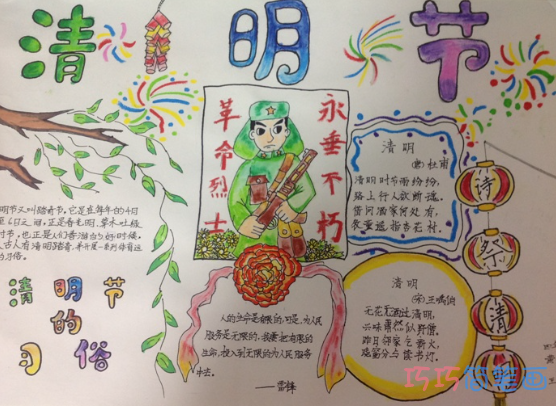 清明节
革命烈士
永垂不朽
明节又叫踏青节,它是在每年的4月
至6日之间,正是春光明,草木吐绿
时节,也正是人们春游的好时候,
古人有清明踏青,并开展一系列体育运
习俗。
清明节
的
习俗
人的生命是有限的,可是,为人民
服务是无限的,我要把有限的
生命,投入到无限的为人民服务
中去。
——雷锋
清明
(唐)杜甫
清明时节雨纷纷,
路上行人欲断魂。
借问酒家何处有,
牧童遥指杏花村。
清明
(宋)王禹偁
无花无酒过清明,
兴味萧然似野僧。
昨日邻家乞新火,
晓窗分与读书灯。
诗
祭
清
巧巧简笔画